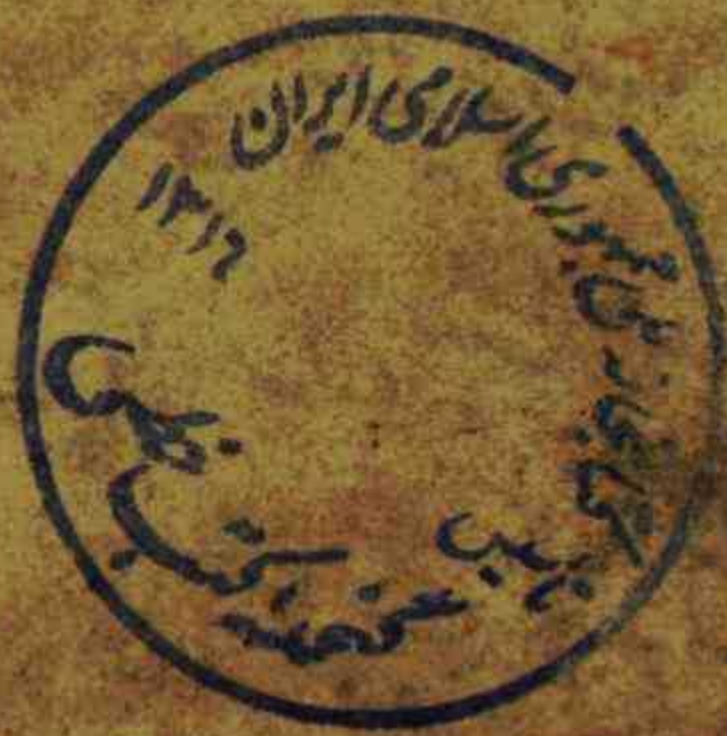 کتابخانه ملی جمهوری اسلامی ایران
۱۳۱۶
تأسیس
کتب خطی